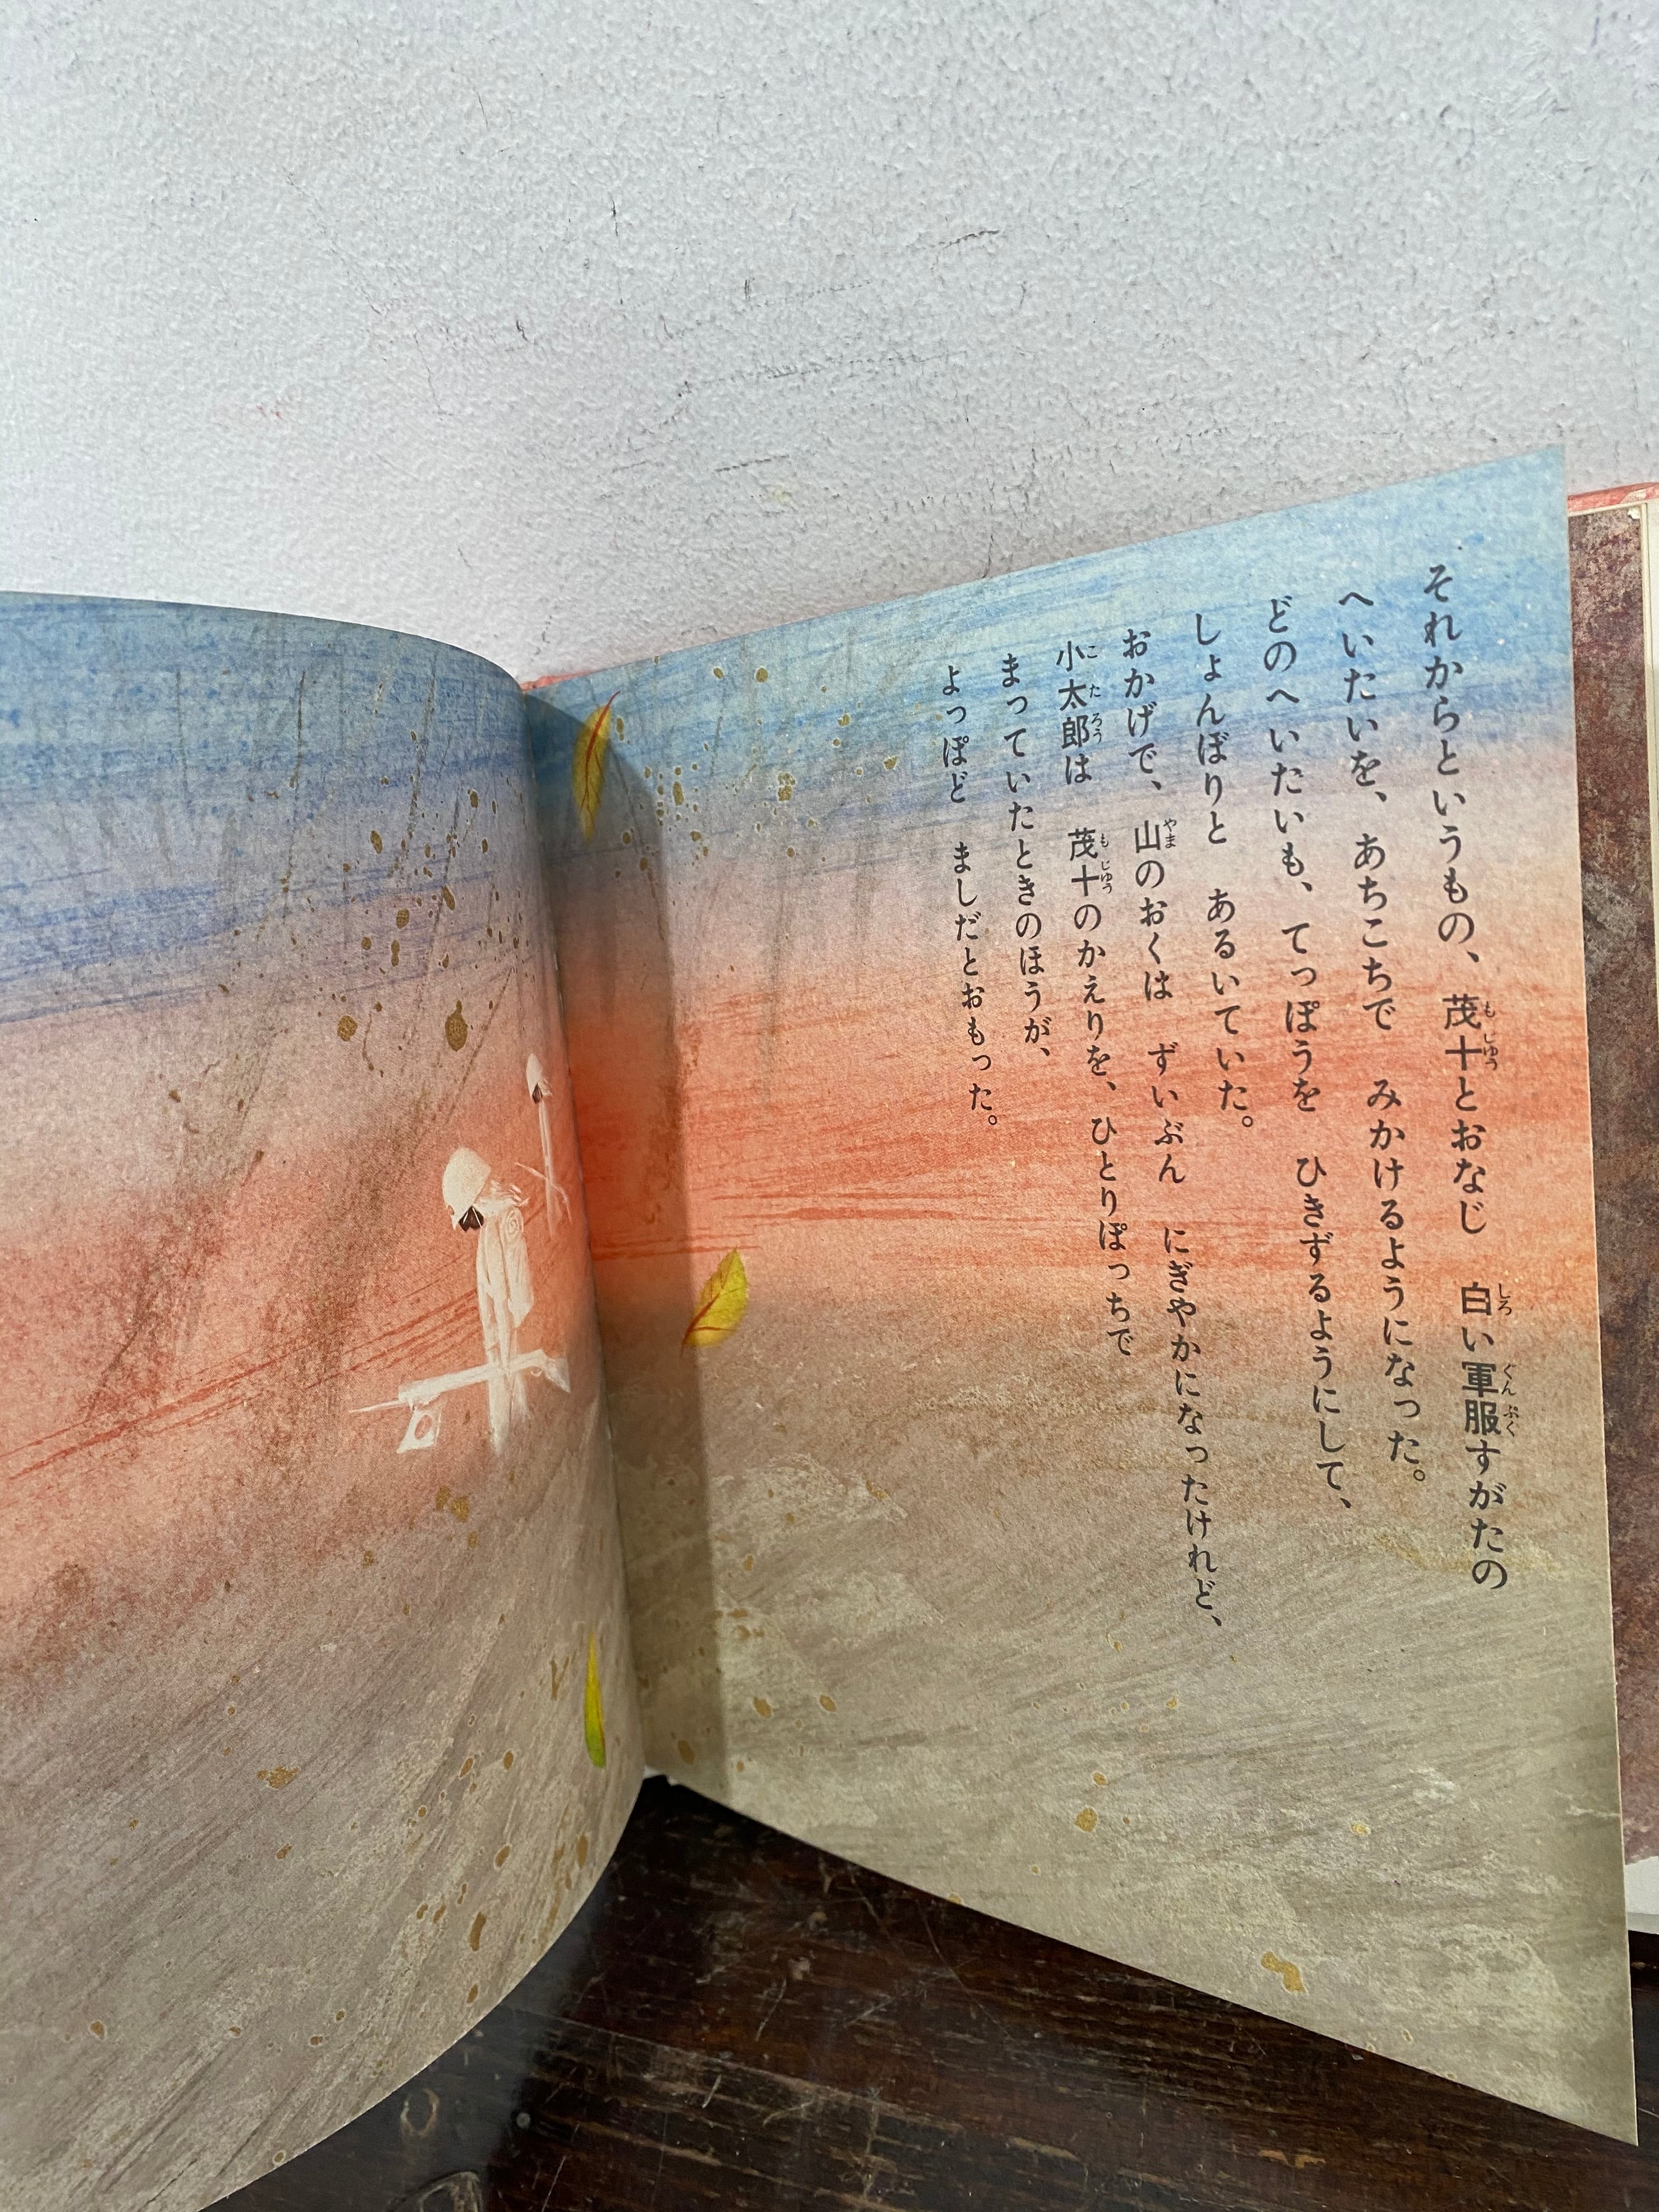 それからというもの、 茂十とおなじ 白い軍服すがたの
へいたいを、 あちこちで みかけるようになった。
どのへいたいも、 てっぽうを ひきずるようにして、
しょんぼりと あるいていた。
おかげで、 山のおくは ずいぶん にぎやかになったけれど、
小太郎は 茂十のかえりを、 ひとりぽっちで
まっていたときのほうが、
よっぽど ましだとおもった。